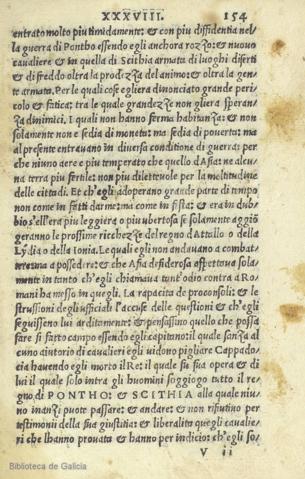 XXXVIII. 154
entrato molto piu timidamente: & con piu diffidentia nel/
la guerra di Pontho essendo egli anchora rozzo: & nuouo
caualiere & in quella di Scithia armata di luoghi diserti
& di freddo oltra la prodezza del animo: & oltra la gen/
te armata. Per le quali cose egli era dinonciato grande peri/
colo & fatica: tra le quale grandezze non gli era speran/
za di nimici. I quali non hanno ferma habitanza: & non
solamente non e sedia di moneta: ma sedia di pouerta: ma
al presente entrauano in diuersa conditione di guerra: per
che niuno aere e piu temperato che quello d'Asia: ne alcu/
na terra piu fertile: non piu diletteuole per la moltitudine
delle cittadi. Et ch'egli adoperano grande parte di tempo
non come in fatti d'arme: ma come in festa: & era in dub/
bio s'ell'era piu leggiera o piu ubertosa se solamente aggiõ
geranno le prossime ricchezze del regno d'Attallo o della
Lydia o della Ionia. Le quali egli non andauano a combat/
tere: ma a possedere: & che Asia desiderosa aspettaua sola/
mente in tanto ch'egli chiamaua tant'odio contra a Ro/
mani ha messo in quegli. La rapacita de proconsoli: & le
strussioni degli ufficiali l'accuse delle questioni & ch'egli
seguisseno lui arditamente: & pensassino quello che possa
fare si fatto campo essendo egli capitano: il quale sanza al
cuno aiutorio di caualieri egli uidono pigliare Cappado/
cia hauendo egli morto il Re: il quale fu sua opera & di
lui il quale solo intra gli huomini soggiogo tutto il re/
gno di PONTHO: & SCITHIA alla quale niu/
no inanzi puote passare: & andare: & non rifiutino per
testimonii della sua giustitia: & liberalita quegli caualie/
ri che l'hanno prouata & hanno per indicio: ch'egli so/
V ii
Biblioteca de Galicia